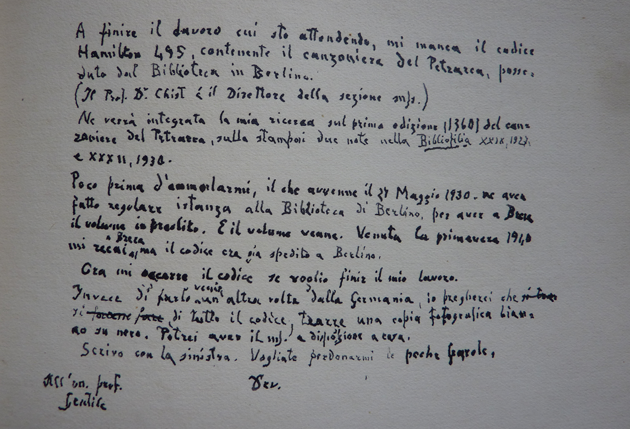 A finire il lavoro cui sto attendendo, mi manca il codice
Hamilton 495, contenente il canzoniere del Petrarca, posse-
duto dal Biblioteca in Berlino.
(Il Prof. Dr. Christ è il Direttore della sezione mss.)
Ne verrà integrata la mia ricerca sul prima edizione (1360) del can-
zoniere del Petrarca, sulla stampai due note nella Bibliofilia XXIX, 1927,
e XXXII, 1930.
Poco prima d'ammalarmi, il che avvenne il 27 Maggio 1930. ne avea
fatto regolare istanza alla Biblioteca di Berlino, per aver a Brera
il volume in prestito. E il volume venne. Venuta la primavera 1940
mi recai a Brera, ma il codice era già spedito a Berlino.
Ora mi occorre il codice se voglio finir il mio lavoro.
Invece di farlo venir un'altra volta dalla Germania, io pregherei che
si di tutto il codice, trarre una copia fotografica bian-
co su nero. Potrei aver il ms. a disposizione a casa.
Scrivo con la sinistra. Vogliate perdonarmi le poche parole.
All'on. prof. Dev.
Gentile